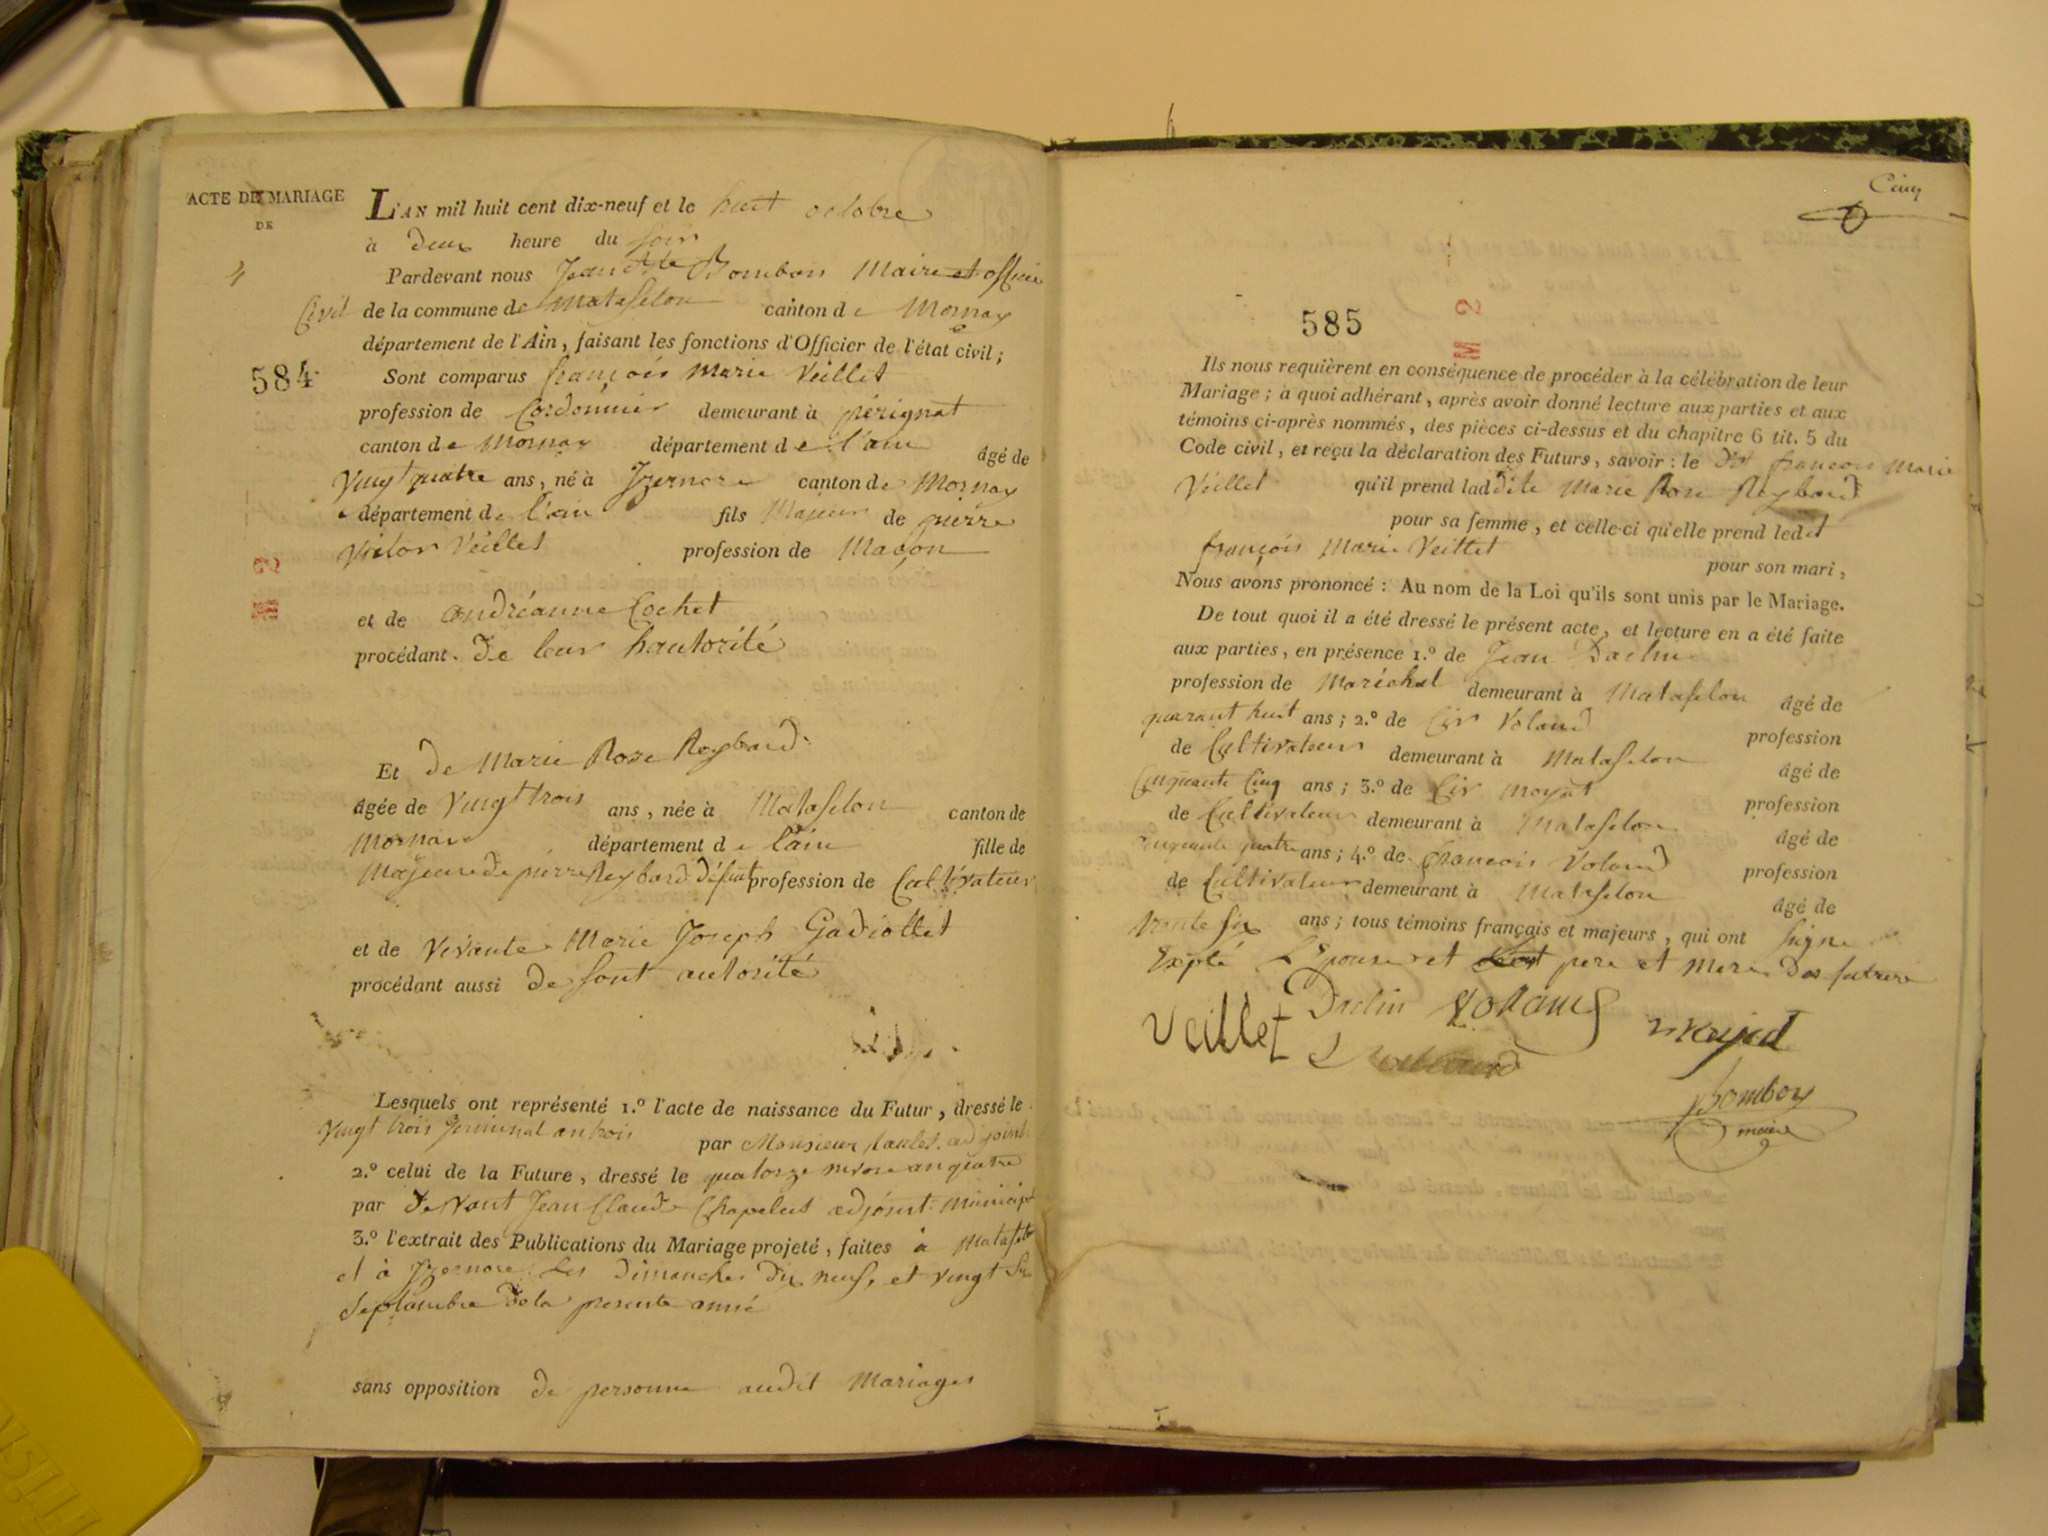 ACTE DE MARIAGE
DE
4
L'AN mil huit cent dix-neuf et le huit octobre
à deux heure du soir
Pardevant nous Jean Bombon Maire et officier
Civil de la commune de Matafelon canton de Mornay
département de l'Ain, faisant les fonctions d'Officier de l'état civil;
584
Sont comparus françois Marie Veillet
profession de Cordonnier demeurant à pérignat
canton de Mornay département de l'ain âgé de
Vingt quatre ans, né à Izernore canton de Mornay
département de l'ain fils Majeur de pierre
Victor Veillet profession de Maçon
M 2
et de andréanne Cochet
procédant de leur hautorité
Et de Marie Rose Reybard
âgée de Vingt trois ans, née à Matafelon canton de
Mornay département de l'ain fille de
Majeure de pierre Reybard défunt profession de Cultivateur
et de Vivante Marie Joseph Gadiollet
procédant aussi de sont autorité
Lesquels ont représenté 1.º l'acte de naissance du Futur, dressé le
Vingt trois germinal an trois par Monsieur adjoint
2.º celui de la Future, dressé le quatorze nivose an quatre
par devant Jean Claude Chapelut adjoint Municipal
3.º l'extrait des Publications du Mariage projeté, faites à Matafelon
et à Izernore les dimanches dix neuf, et vingt six
Septembre de la presente anné
sans opposition de personne audit Mariages
Cinq
585
M 2
Ils nous requièrent en conséquence de procéder à la célébration de leur
Mariage; à quoi adhérant, après avoir donné lecture aux parties et aux
témoins ci-après nommés, des pièces ci-dessus et du chapitre 6 tit. 5 du
Code civil, et reçu la déclaration des Futurs, savoir: le dt françois Marie
Veillet qu'il prend ladite Marie Rose Reybard
pour sa femme, et celle-ci qu'elle prend ledit
françois Marie Veillet
pour son mari,
Nous avons prononcé: Au nom de la Loi qu'ils sont unis par le Mariage.
De tout quoi il a été dressé le présent acte, et lecture en a été faite
aux parties, en présence 1.º de Jean Daclin
profession de Maréchal demeurant à Matafelon âgé de
quarant huit ans; 2.º de Voland profession
de Cultivateur demeurant à Matafelon âgé de
Cinquante Cinq ans; 3.º de Moyat profession
de Cultivateur demeurant à Matafelon âgé de
Cinquante quatre ans; 4.º de françois Voland profession
de Cultivateur demeurant à Matafelon âgé de
trente six ans; tous témoins français et majeurs, qui ont signe
Expté L'Epouse et pere et Mere des futures
Daclin Voland
Veillet
Bombon
maire